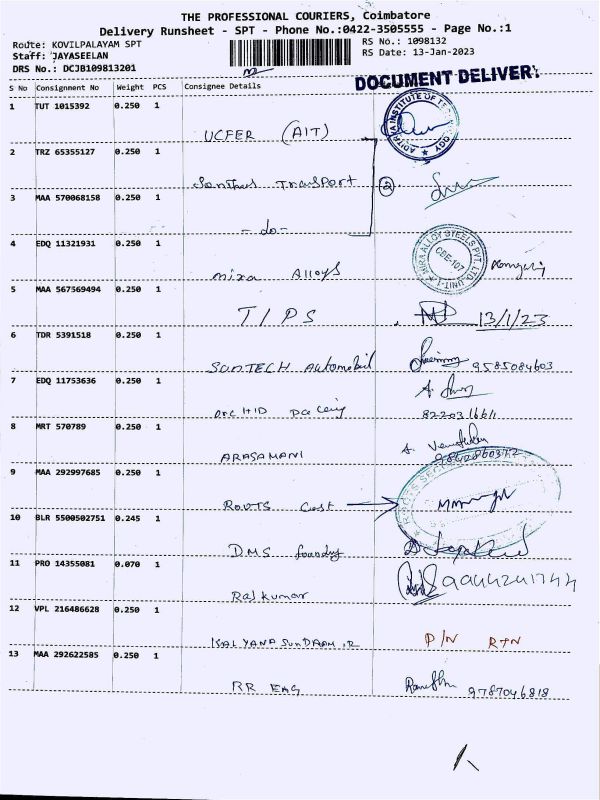 THE PROFESSIONAL COURIERS, Coimbatore
Delivery Runsheet - SPT - Phone No.:0422-3505555 - Page No.:1
Route: KOVILPALAYAM SPT
RS No.: 1098132
Staff: JAYASEELAN
RS Date: 13-Jan-2023
DRS No.: DCJB109813201
DOCUMENT DELIVERY
S No Consignment No Weight PCS Consignee Details
1 TUT 1015392 0.250 1
UCFER (AIT)
ADITHYA INSTITUTE OF TECHNOLOGY
2 TRZ 65355127 0.250 1
Transport
2
3 MAA 570068158 0.250 1
- do -
4 EDQ 11321931 0.250 1
mira Alloys
MIRA ALLOY STEELS PVT. LTD. UNIT-1
CBE-107
5 MAA 567569494 0.250 1
TIPS
13/1/23
6 TDR 5391518 0.250 1
SUNTECH Automobil
9585084603
7 EDQ 11753636 0.250 1
8 MRT 570789 0.250 1
ARASAMANI
9 MAA 292997685 0.250 1
ROOTS Cast
10 BLR 5500502751 0.245 1
DMS foundry
11 PRO 14355081 0.070 1
Raj kumar
9944241744
12 VPL 216486628 0.250 1
KALYANA SUNDARAM .R
D/N RTN
13 MAA 292622585 0.250 1
RR ENG
9787046818